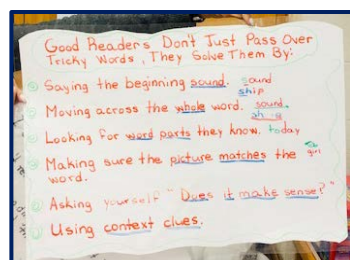 Good Readers Don't Just Pass Over
Tricky Words, They Solve Them By:
Saying the beginning sound. sound
ship
Moving across the whole word. sound.
Looking for word parts they know. today
Making sure the picture matches the girl
word.
Asking yourself "Does it make sense?"
Using context clues.